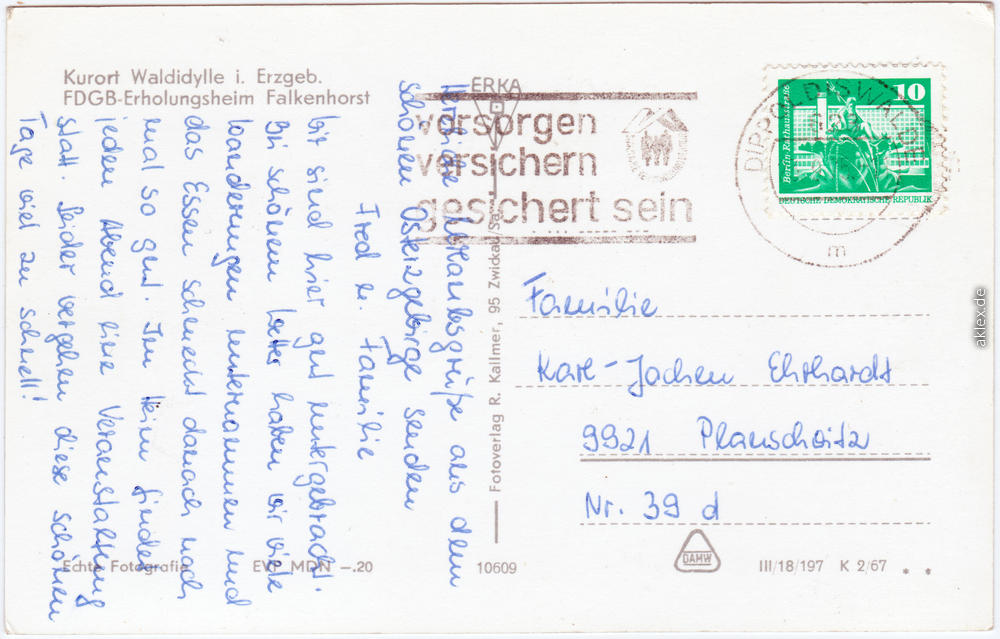 Kurort Waldidylle i. Erzgeb.
FDGB-Erholungsheim Falkenhorst
Herzliche Urlaubsgrüße aus dem
schönen Osterzgebirge senden
Fred u. Familie
Wir sind hier gut untergebracht.
Bei schönem Wetter haben wir viele
Wanderungen unternommen und
das Essen schmeckt danach noch
mal so gut. Im Heim findet
jeden Abend eine Veranstaltung
statt. Leider vergehen diese schönen
Tage viel zu schnell!
Echte Fotografie
EVP MDN -.20
10609
Fotoverlag R. Kallmer, 95 Zwickau/Sa.
ERKA
vorsorgen
versichern
gesichert sein
DIPPOLDISWALDE
m
10
Berlin, Rathausstraße
DEUTSCHE DEMOKRATISCHE REPUBLIK
Familie
Karl-Jochen Ehrhardt
9921 Planschwitz
Nr. 39 d
DAMW
III/18/197 K 2/67 * *
aklex.de